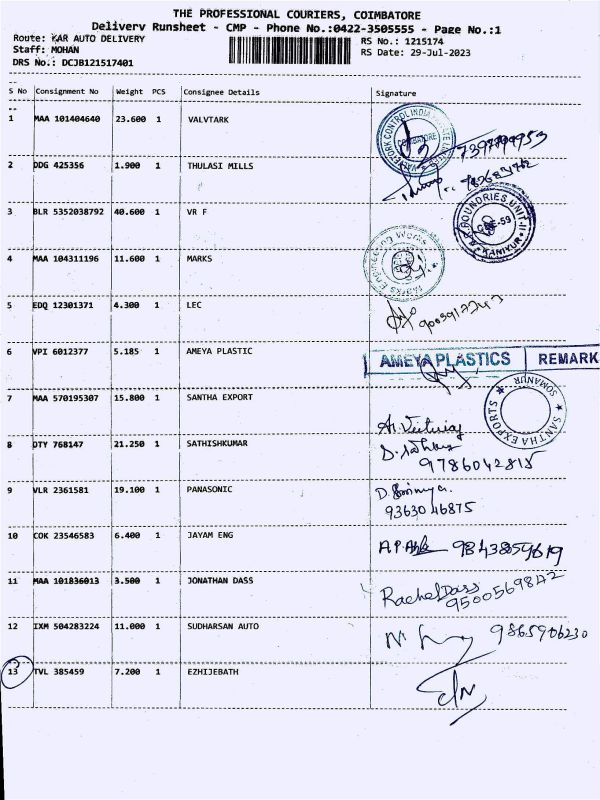 THE PROFESSIONAL COURIERS, COIMBATORE
Delivery Runsheet - CMP - Phone No.:0422-3505555 - Page No.:1
Route: KAR AUTO DELIVERY
RS No.: 1215174
Staff: MOHAN
RS Date: 29-Jul-2023
DRS No.: DCJB121517401
S No Consignment No Weight PCS Consignee Details Signature
1 MAA 101404640 23.600 1 VALVTARK
2 DDG 425356 1.900 1 THULASI MILLS
3 BLR 5352038792 40.600 1 VR F
4 MAA 104311196 11.600 1 MARKS
Marks Engineering Works
5 EDQ 12301371 4.300 1 LEC
6 VPI 6012377 5.185 1 AMEYA PLASTIC
AMEYA PLASTICS REMARK
7 MAA 570195307 15.800 1 SANTHA EXPORT
SANTHA EXPORTS SOMANUR
8 DTY 768147 21.250 1 SATHISHKUMAR
9786042815
9 VLR 2361581 19.100 1 PANASONIC
9363046875
10 COK 23546583 6.400 1 JAYAM ENG
9843859619
11 MAA 101836013 3.500 1 JONATHAN DASS
Rachel Dass
9500569842
12 IXM 504283224 11.000 1 SUDHARSAN AUTO
9865906230
13 TVL 385459 7.200 1 EZHIJEBATH